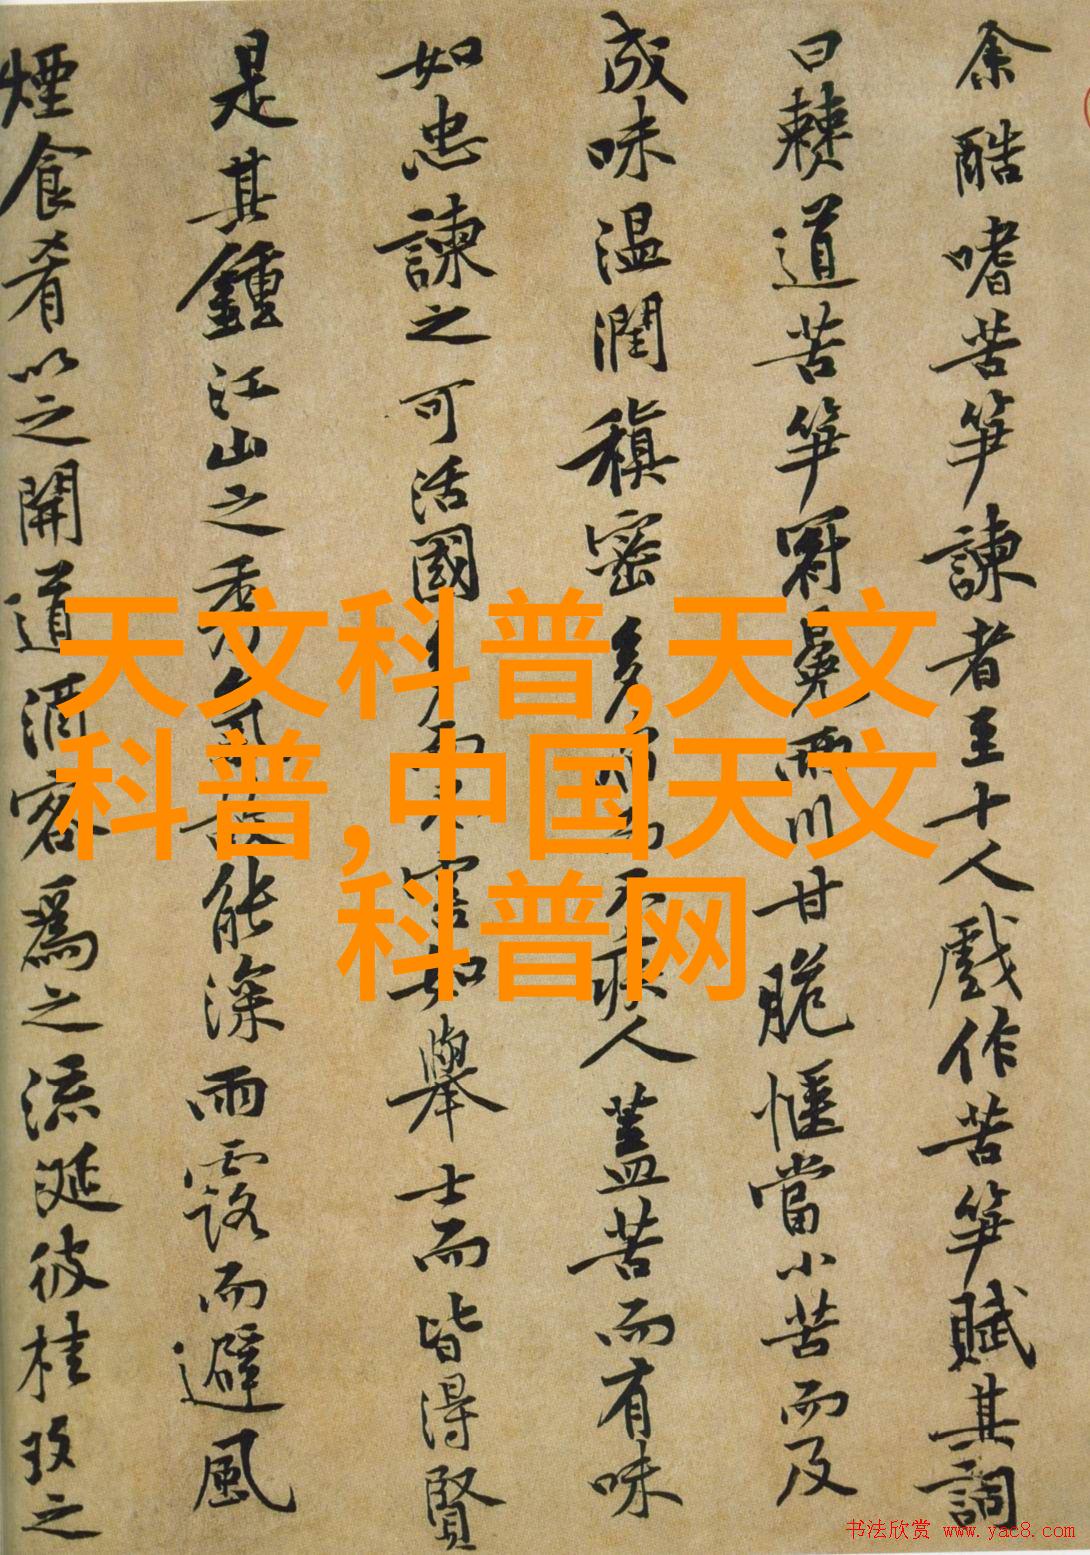 余酷嗜苦笋諫者至十人戲作苦笋賦其詞
曰僰道苦笋冠冕兩川甘脆愜當小苦而及
成味温潤稹密多而不疾人蓋苦而有味
如忠諫之可活國多而不害如舉士而皆得賢
是其鍾江山之秀氣故能深雨露而避風
煙食肴以之開道酒客爲之流涎彼桂玫之
天文科普,天文
科普,中国天文
科普网
书法欣赏 www.yac8.com